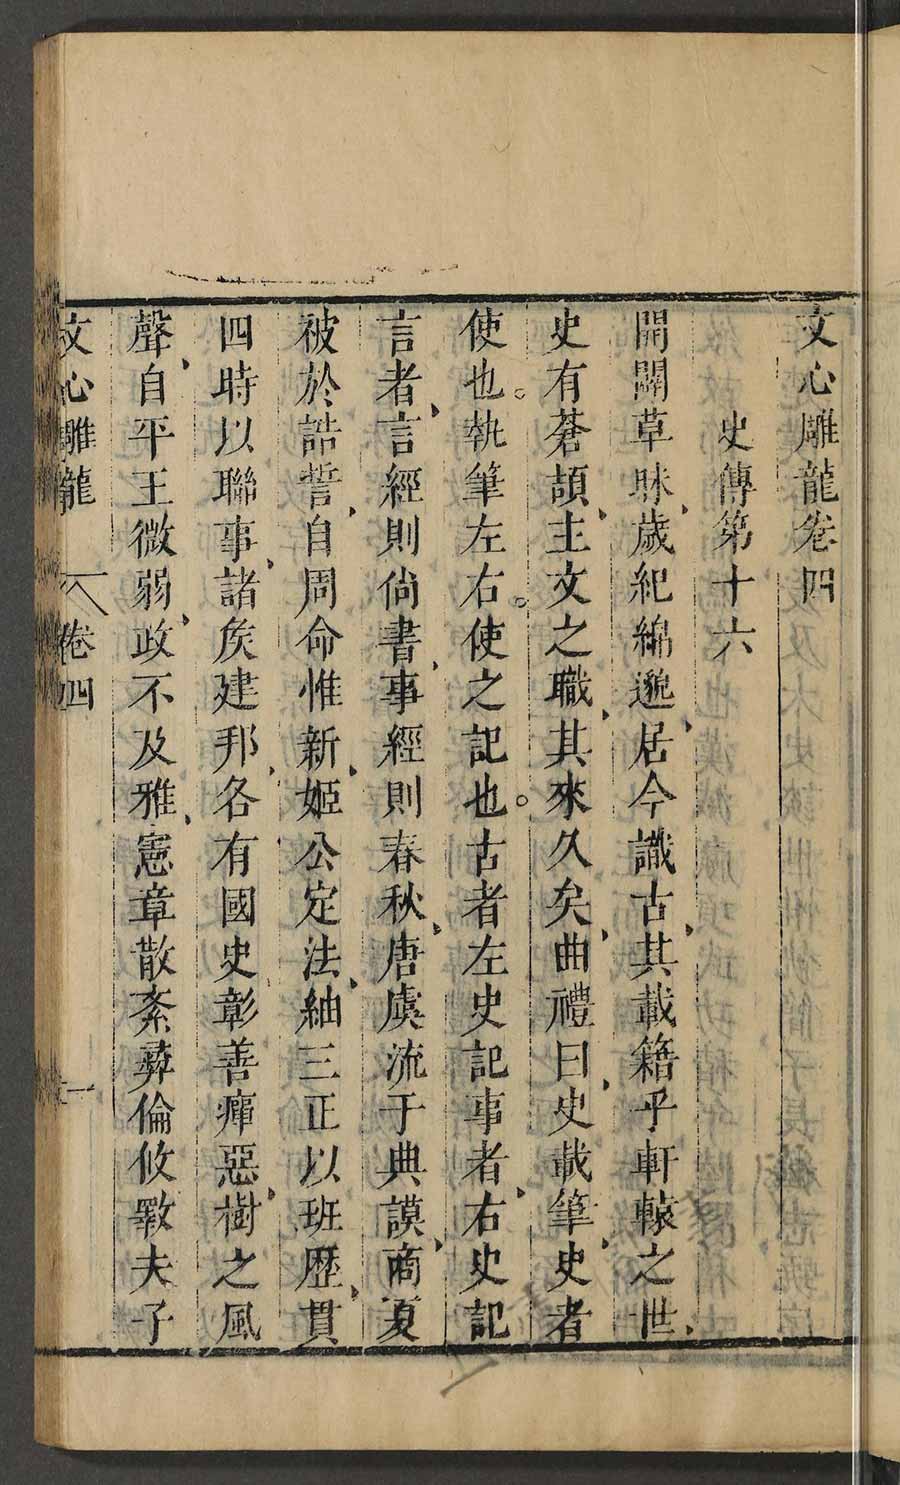 文心雕龍卷四
史傳第十六
開闢草昧、歲紀綿邈、居今識古、其載籍乎、軒轅之世、
史有蒼頡、主文之職、其來久矣、曲禮曰、史載筆、史者
使也。執筆左右。使之記也。古者左史記事者、右史記
言者、言經則尚書、事經則春秋、唐虞流于典謨、商夏
被於誥誓、自周命惟新、姬公定法、紬三正以班歷、貫
四時以聯事、諸矦建邦、各有國史、彰善癉惡、樹之風
聲、自平王微弱、政不及雅、憲章散紊、彛倫攸斁、夫子
文心雕龍 卷四 一